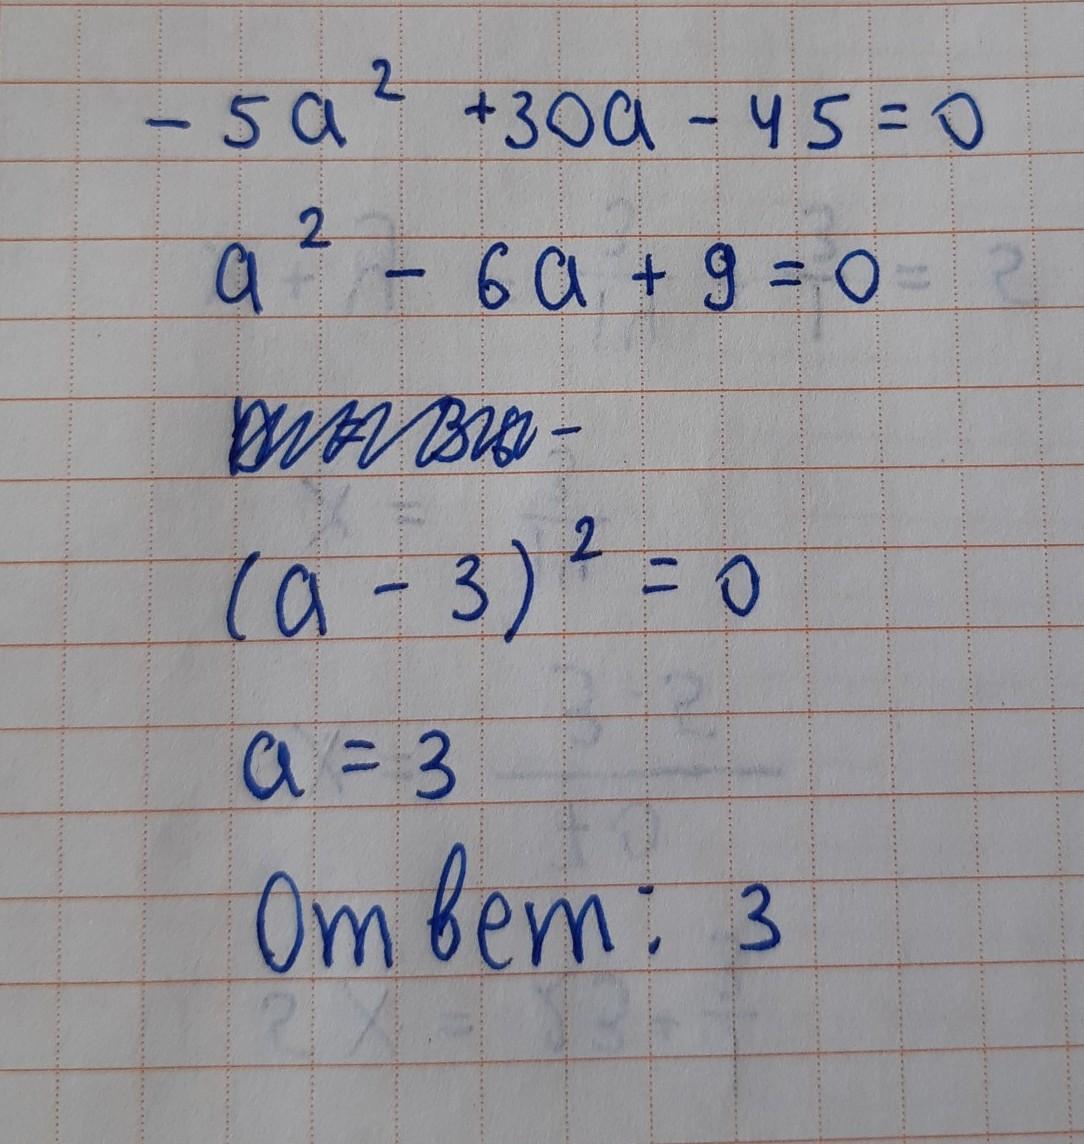 - 5a² +30a - 45 = 0
a² - 6a + 9 = 0
(a - 3)² = 0
a = 3
Ответ: 3